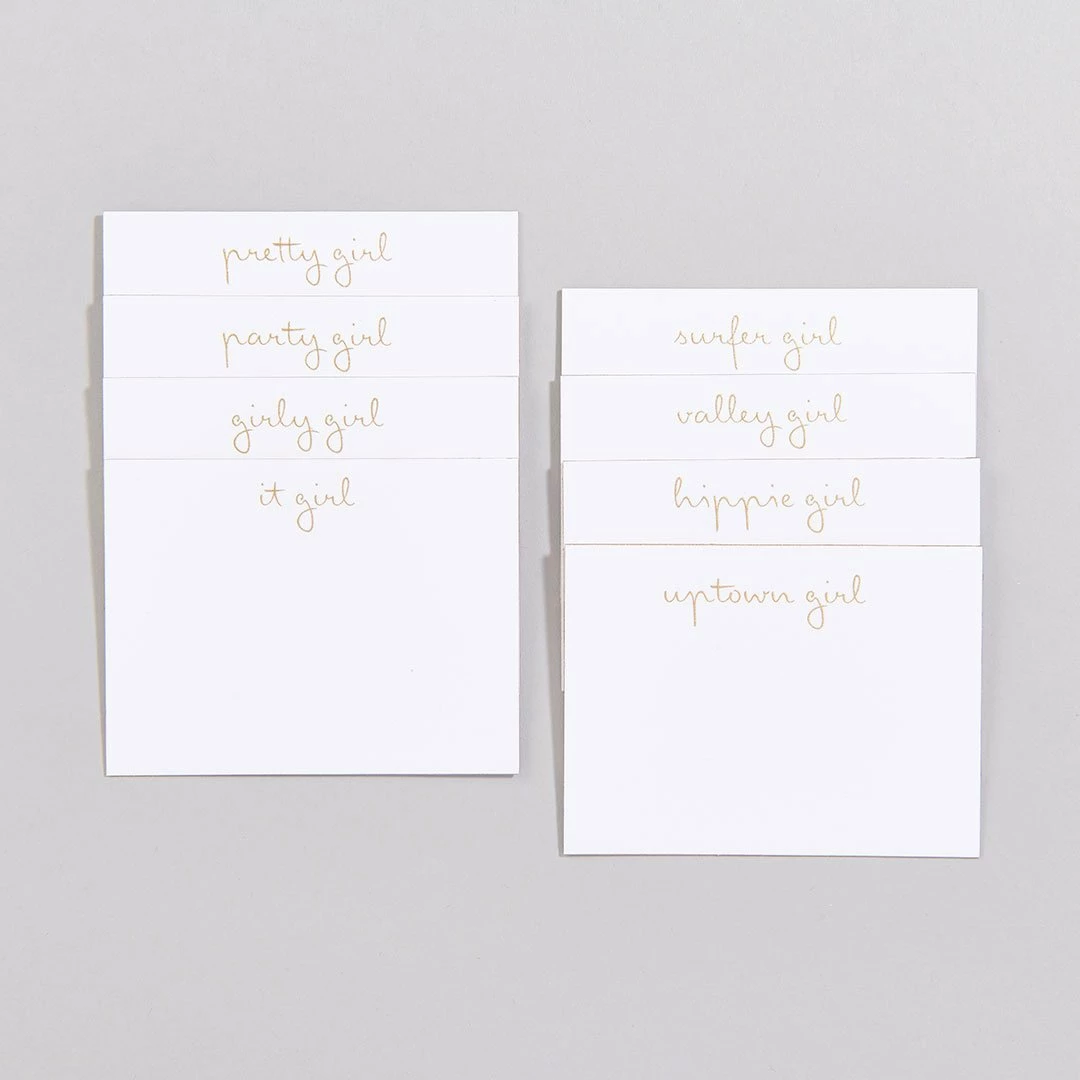 pretty girl
party girl
girly girl
it girl
surfer girl
valley girl
hippie girl
uptown girl